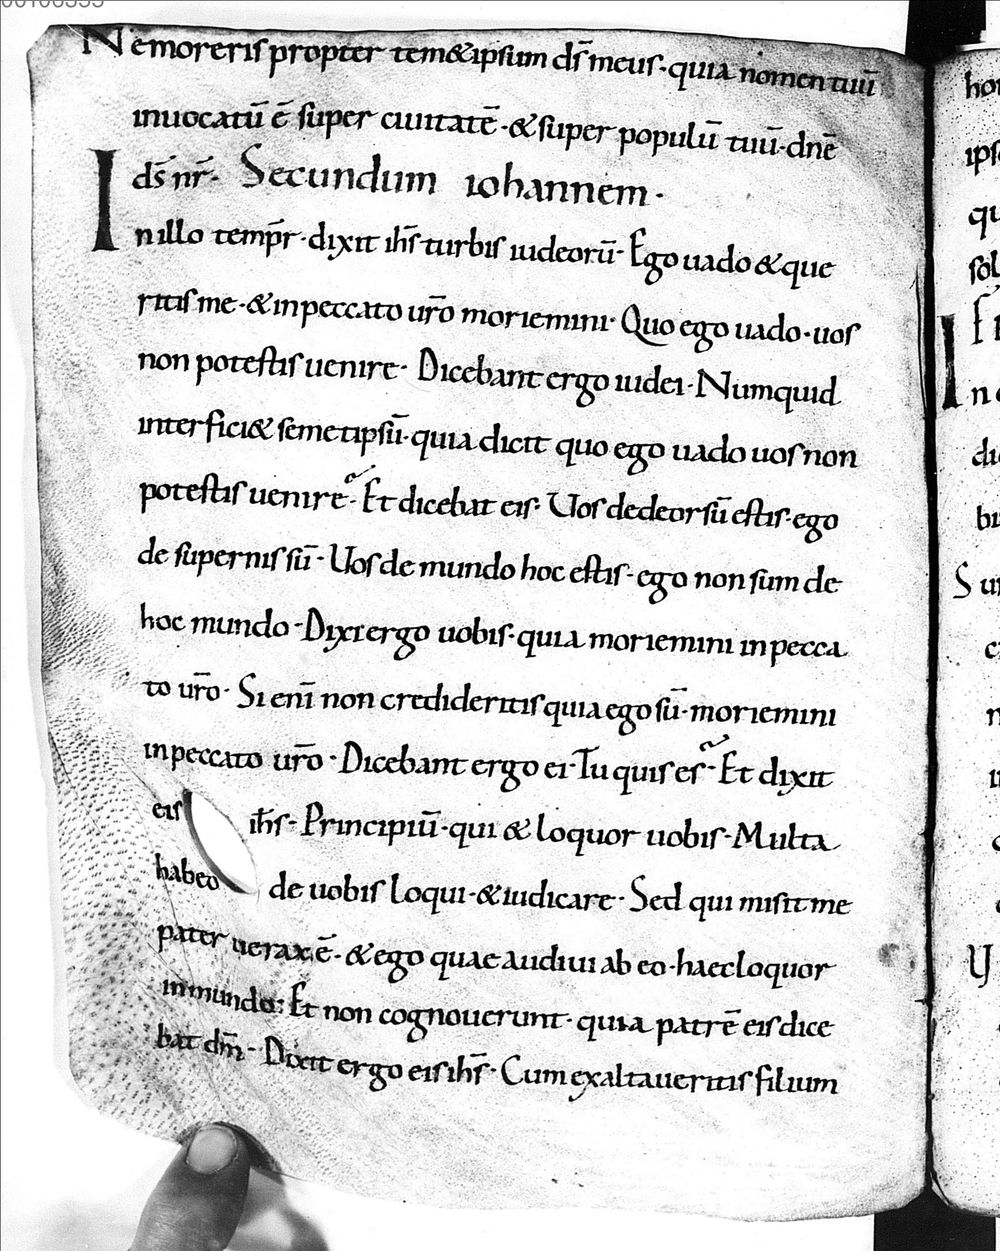 Nemoreris propter tem&ipsum ds̄ meus· quia nomen tuū
inuocatū ē super ciuitatē ·&super populū tuū· dnē
ds̄ nr̄· Secundum iohannem·
In illo temp̄r · dixit ihs̄ turbis iudeorū· Ego uado & que
ritis me ·& in peccato ur̄o moriemini· Quo ego uado· uos
non potestis uenire· Dicebant ergo iudei· Numquid
interfici& semetipsū· quia dicit quo ego uado uos non
potestis uenire· Et dicebat eis· Uos dedeorsū estis· ego
de supernis sū· Uos de mundo hoc estis· ego non sum de
hoc mundo· Dixi ergo uobis· quia moriemini in pecca
to ur̄o· Si enī non credideritis quia ego sū· moriemini
in peccato ur̄o· Dicebant ergo ei· Tu quis es· Et dixit
eis ihs̄· Principiū· qui & loquor uobis· Multa
habeo de uobis loqui·& iudicare· Sed qui misit me
pater uerax ē·& ego quae audiui ab eo· haec loquor
in mundo: Et non cognouerunt· quia patrē eis dice
bat dm̄· Dixit ergo eis ihs̄· Cum exaltaueritis filium